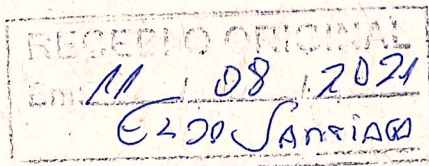 RECEBI O ORIGINAL
Em: 11 / 08 / 2021
Elio Santiago